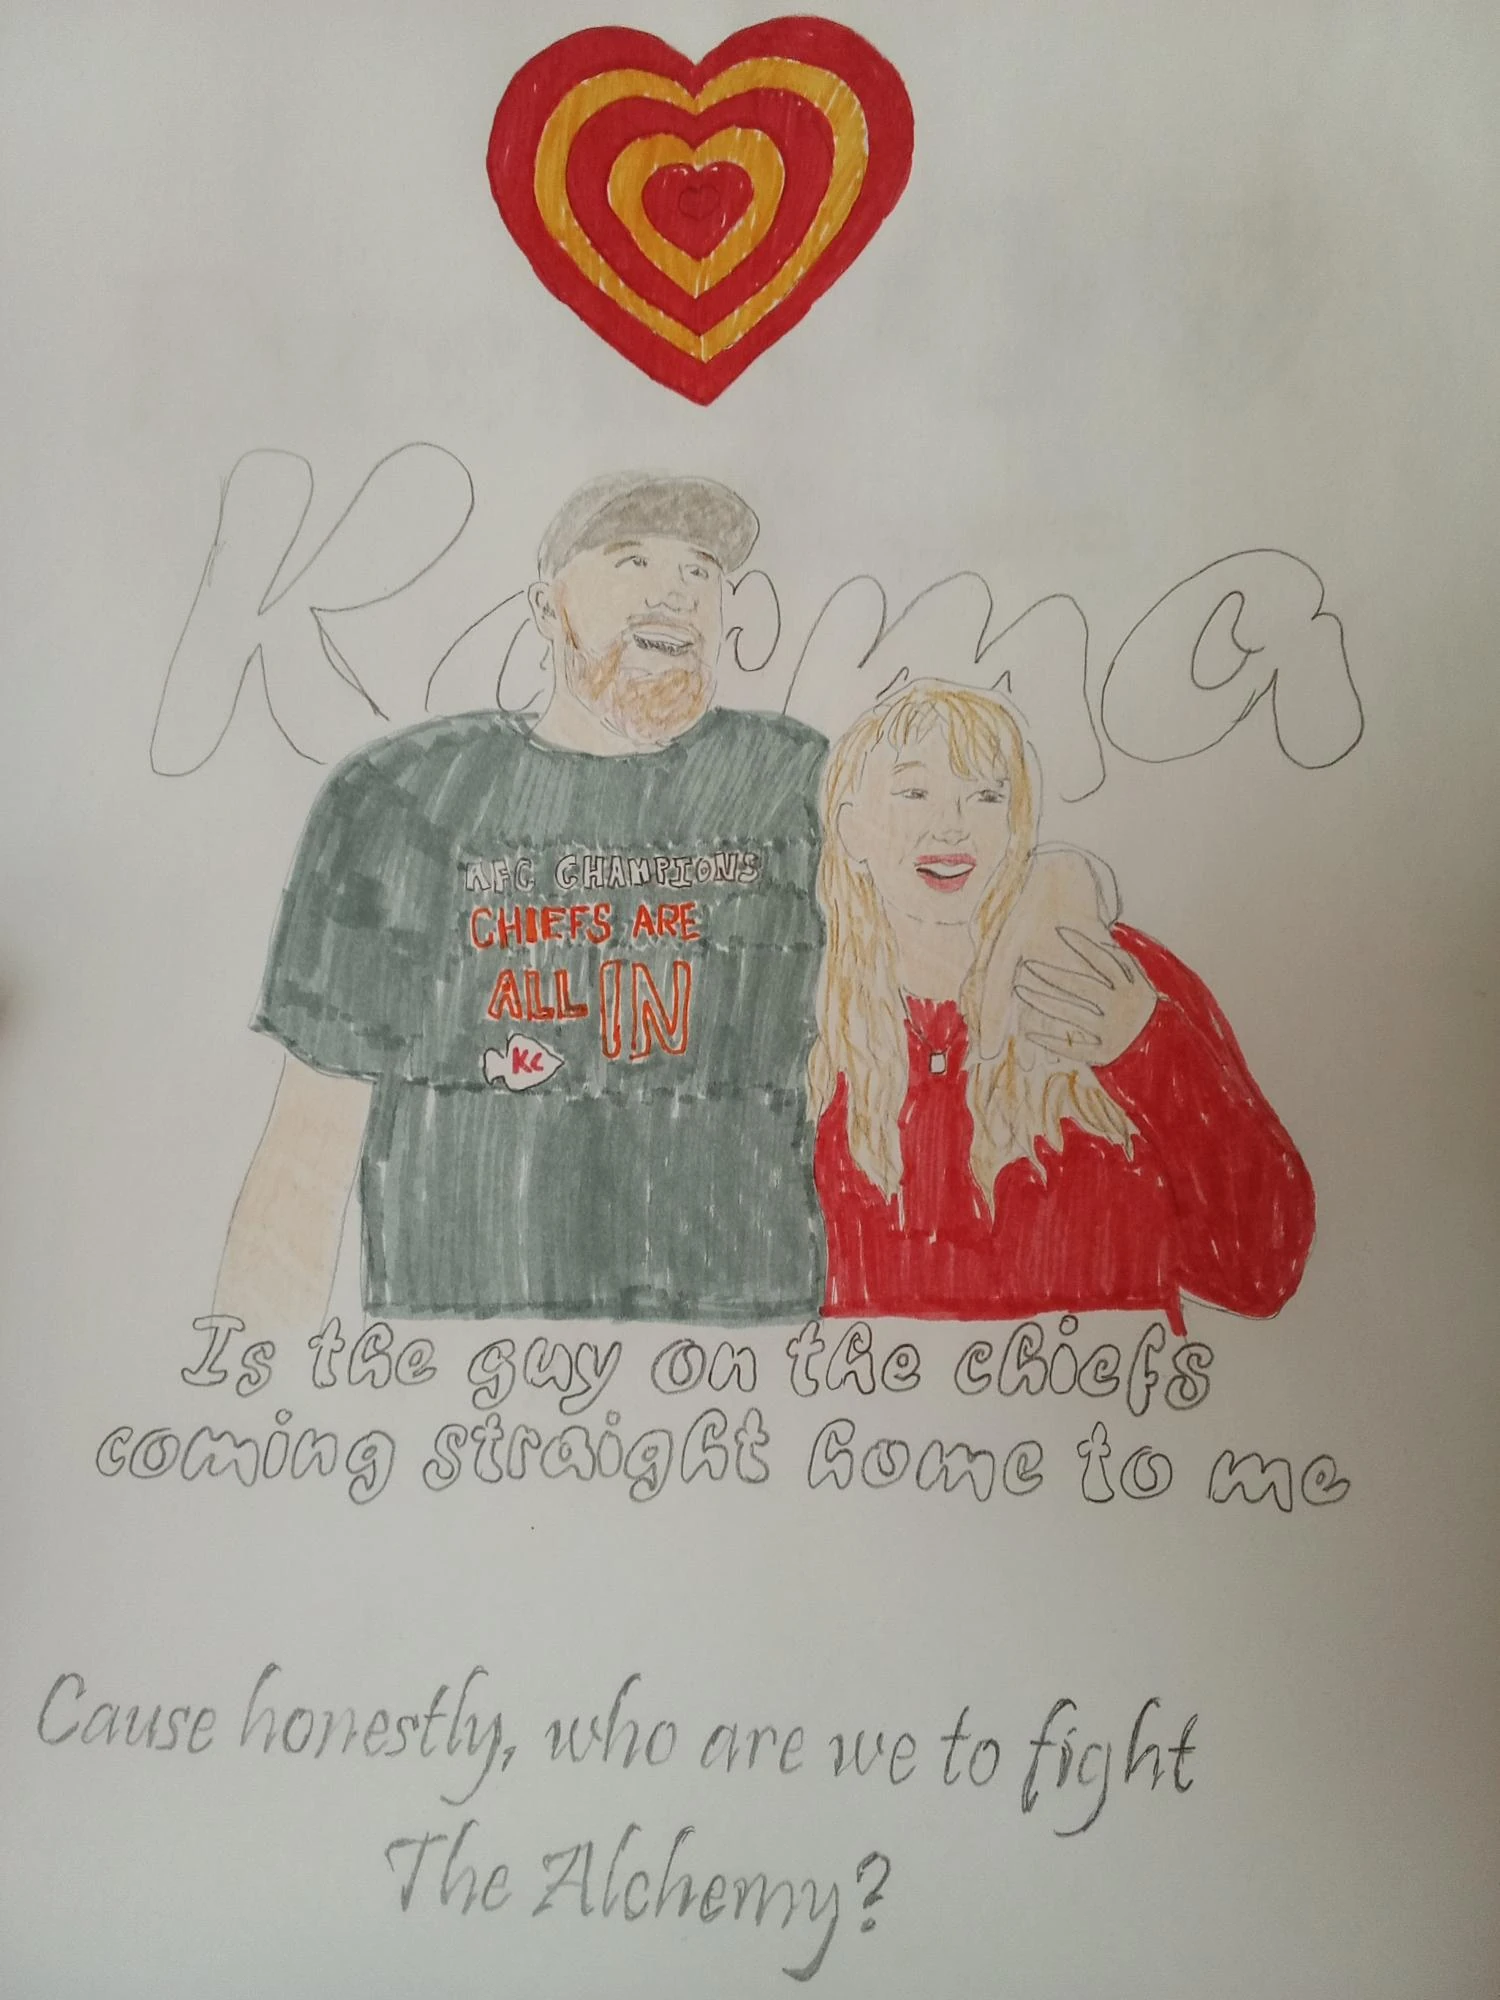 Karma
AFC CHAMPIONS
CHIEFS ARE
ALL IN
KC
Is the guy on the chiefs
coming straight home to me
Cause honestly, who are we to fight
The Alchemy?